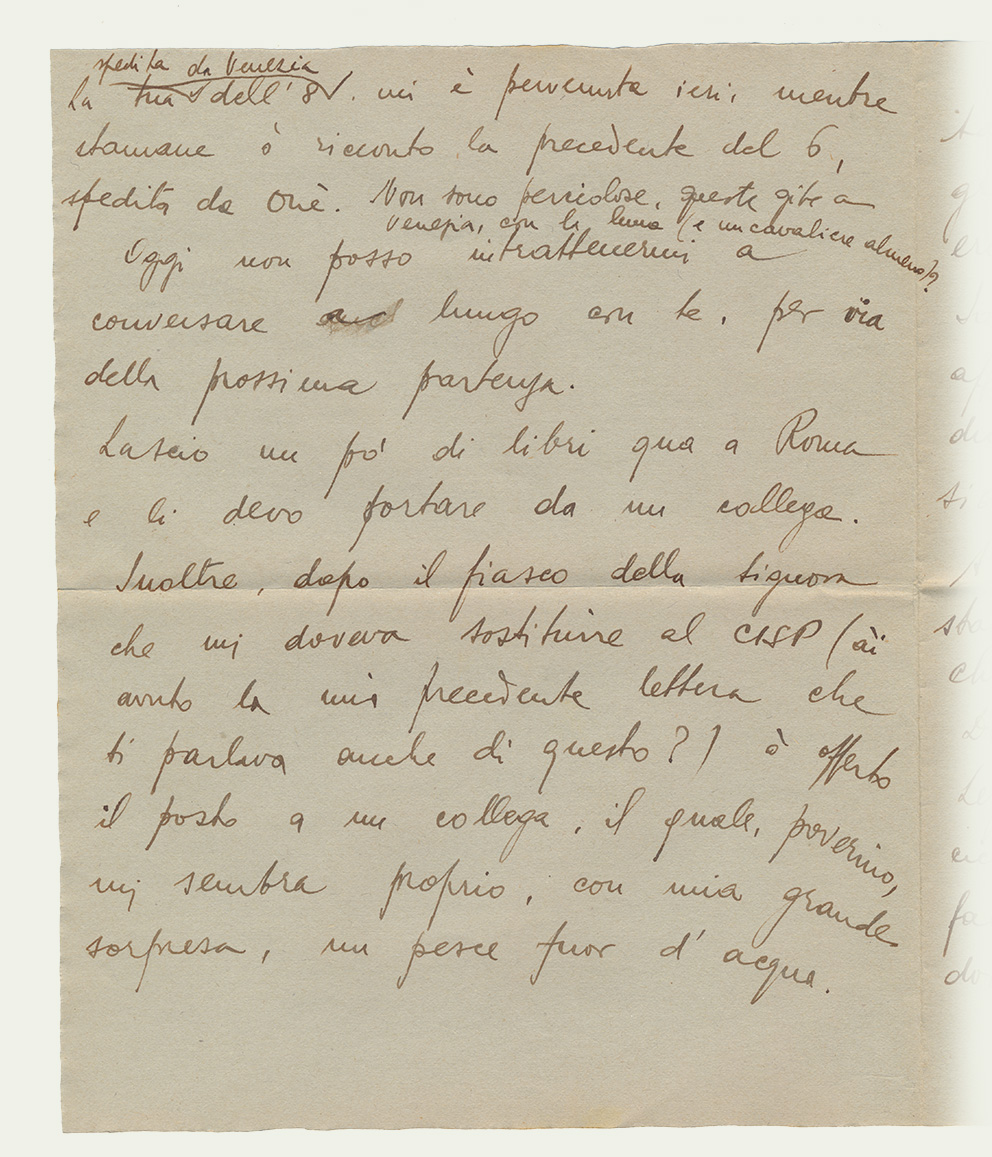 spedita da Venezia
La tua dell' 8 V. mi è pervenuta ieri, mentre
stamane ò ricevuto la precedente del 6,
spedita da Onè. Non sono pericolose, queste gite a
Venezia, con la luna (e un cavaliere almeno)?
Oggi non posso intrattenermi a
conversare a lungo con te, per via
della prossima partenza.
Lascio un pó di libri qua a Roma
e li devo portare da un collega.
Inoltre, dopo il fiasco della signora
che mi doveva sostituire al CISP (ài
avuto la mia precedente lettera che
ti parlava anche di questo?) ò offerto
il posto a un collega, il quale, poverino,
mi sembra proprio, con mia grande
sorpresa, un pesce fuor d'acqua.